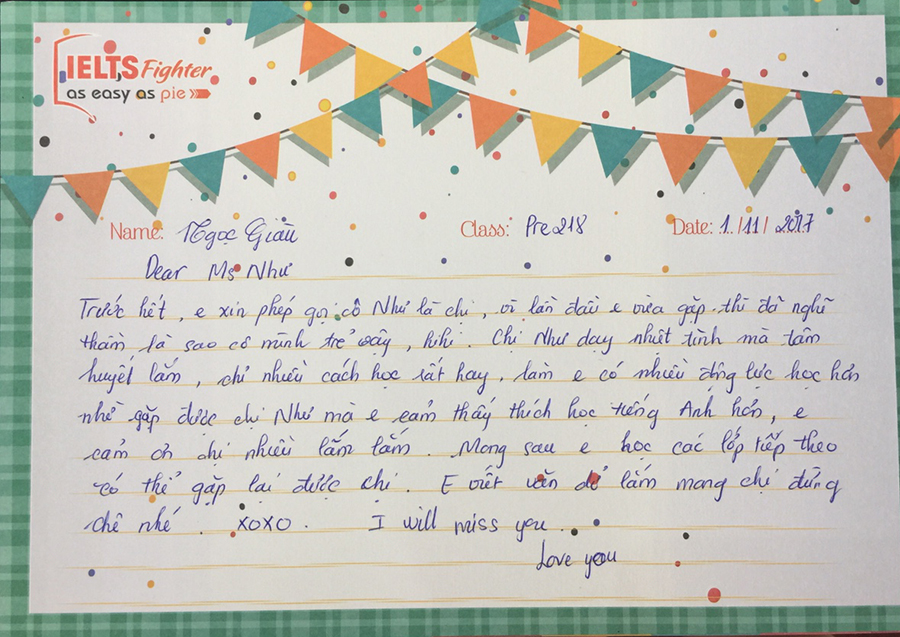 IELTS Fighter
as easy as pie
Name: Ngọc Giàu Class: Pre218 Date: 1/11/2017
Dear Ms Như
Trước hết, e xin phép gọi cô Như là chị, vì lần đầu e vừa gặp thì đã nghĩ
thầm là sao cô mình trẻ vậy, hihi. Chị Như dạy nhiệt tình mà tâm
huyết lắm, chỉ nhiều cách học rất hay, làm e có nhiều động lực học hơn
nhờ gặp được chị Như mà e cảm thấy thích học tiếng Anh hơn, e
cảm ơn chị nhiều lắm lắm. Mong sau e học các lớp tiếp theo
có thể gặp lại được chị. E viết văn dở lắm mong chị đừng
chê nhé. xoxo. I will miss you.
Love you